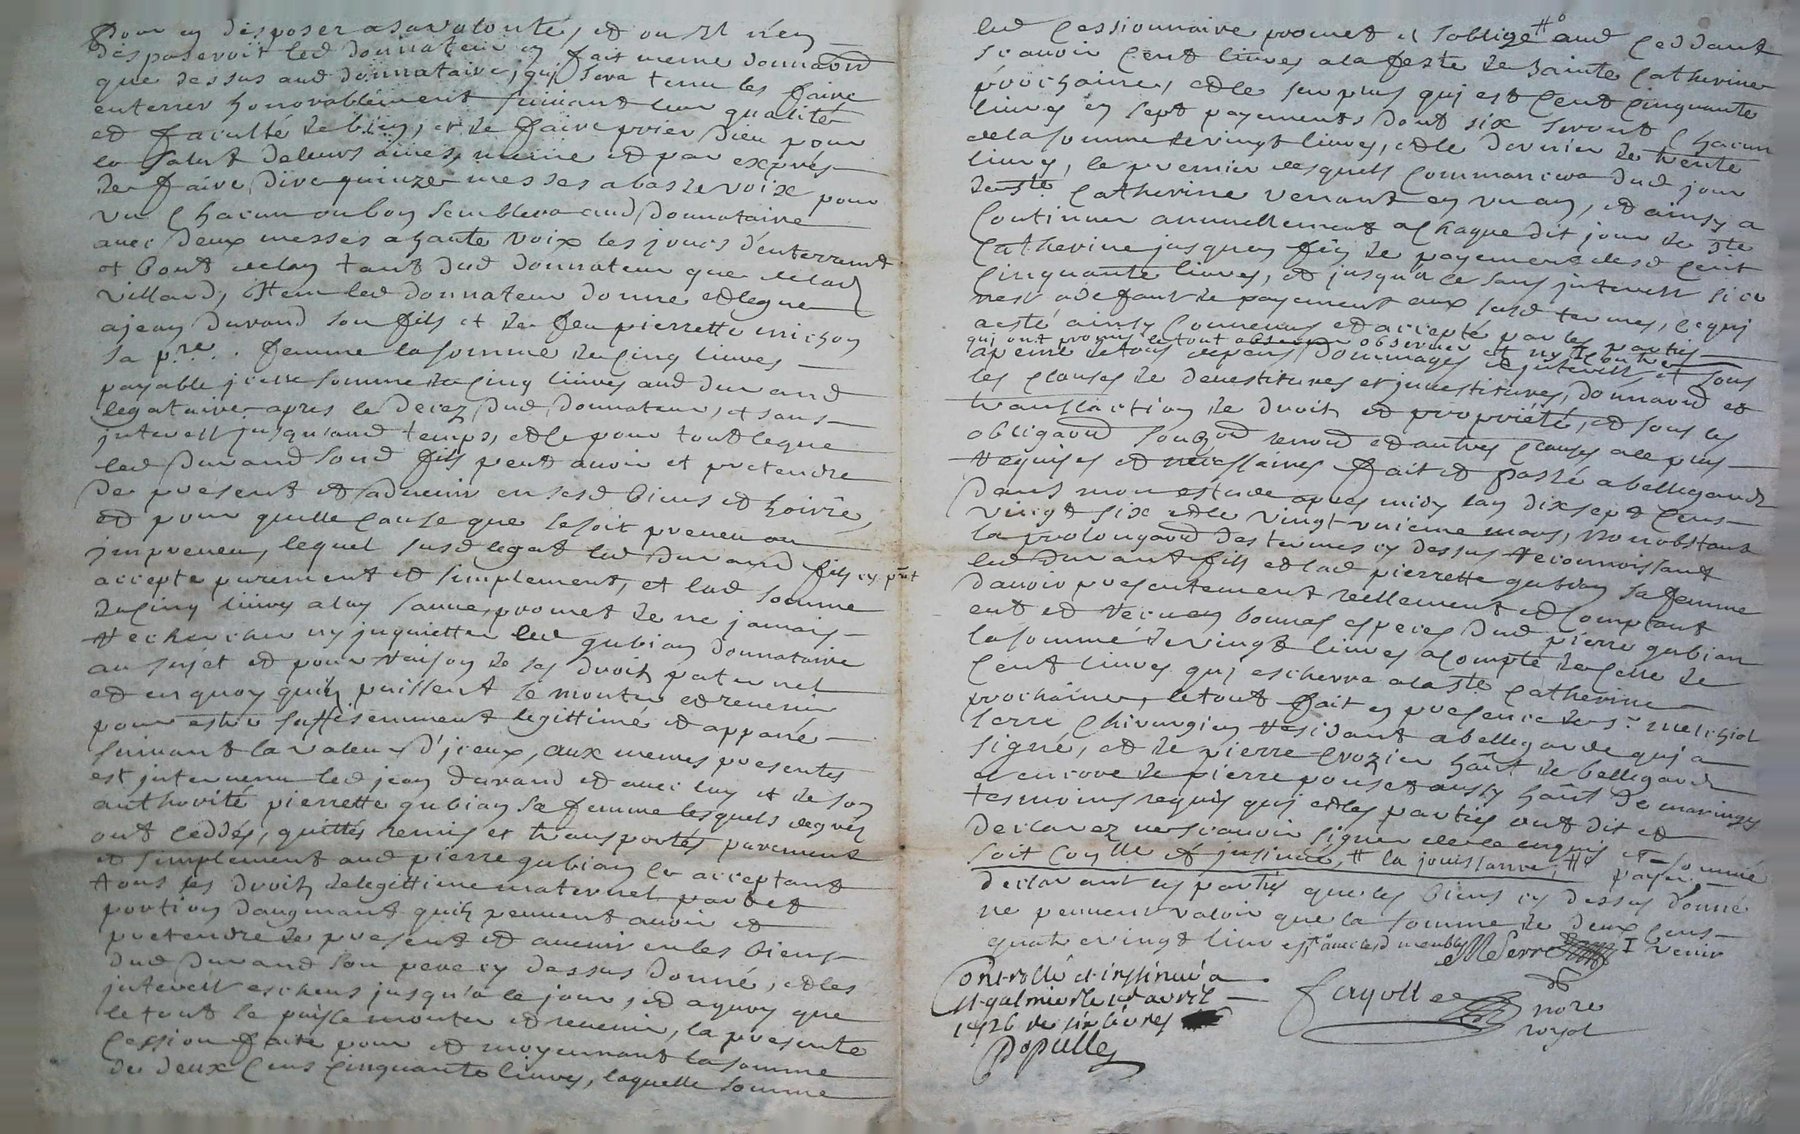 pour en disposer a sa volonté, et ou Il n'en
disposeroit led donnateur en fait meme donnaon
que dessus aud donnataire, qui sera tenu les faire
enterrer honorablement suivant leur qualité
et faculté de bien, et de faire prier Dieu pour
le salut de leurs ames, meme et par exprés
de faire dire quinze messes a basse voix pour
un chacun ou bon semblera aud donnataire
avec deux messes a haute voix les jours d'enterremt
et bout de lan tant dud donnateur que de lad
villard, Item led donnateur donne et legue
a jean durand son fils et de feu pierrette michon
sa p.re femme la somme de cinq livres
payable jcelle somme de cinq livres aud durand
legataire apres le decez dud donnateur, et sans
interest jusqu'aud temps, et le pour tout ce que
led durand soud fils peut avoir et pretendre
de present et advenir en sesd biens et hoirie,
et pour quelle cause que ce soit preveu ou
impreveu, lequel susd legat led durand fils cy pnt
accepte purement et simplement, et lad somme
de cinq livres a luy sauve, promet de ne jamais
rechercher ny inquietter led gubian donnataire
au sujet et pour raison de ses droits paternel
et en quoy quils puissent se monter et revenir
pour estre suffisemment legittimé et appané
suivant la valeur d'jceux, aux memes presentes
est intervenu led jean durand et avec luy et de son
authorité pierrette gubian sa femme lesquels de grés
ont ceddés, quittés remis et transportés purement
et simplement aud pierre gubian ce acceptant
tous les droits de legittime maternel part et
portion daugmant quils peuvent avoir et
pretendre de present et avenir en les biens
dud durand son pere cy dessus donné, et les
interest escheus jusqu'a ce jour, et a quoy que
le tout se puisse monter et revenir, la presente
cession faite pour et moyennant la somme
de deux cens cinquante livres, laquelle somme
led cessionnaire promet et soblige #o aud ceddant
scavoir cent livres a la feste de sainte catherine
prochaine, et le surplus qui est cent cinquante
livres en sept payements dont six seront chacun
de la somme de vingt livres, et le dernier de trente
livres, le premier desquels commancera dud jour
de ste catherine venant en un an, et ainsy a
continuer annuellement a chaque dit jour de ste
catherine jusquen fin de payement desd cent
cinquante livres, et jusqu'a ce sans interest si ce
nest a deffaut de payement aux susd termes, ce qui
a esté ainsy convenus et accepté par les parties
qui ont promis le tout observer et ny contrevenir
a peine de tous depens, dommages et interest et sous
les clauses de devestitures et investitures, donnaon et
translaction de droits et propriété, et sous les
obligaon soubzon renon et autres clauses a ce plus
requises et necessaires fait et passé a bellegarde
dans mon estude apres midy lan dix sept cens
vingt six et le vingt unieme mars, nonobstant
la prolongaon des termes cy dessus reconnoissant
led durant fils et lad pierrette gubian sa femme
davoir presentement reellement et comptant
eut et receu en bonnes especes dud pierre gubian
la somme de vingt livres a compte de celle de
cent livres qui eschera a la ste catherine
prochaine, le tout fait en presence de sr melchiol
serre chirurgien residant a bellegarde qui a
signé, et de pierre crozier hant de bellegarde
et encore de pierre poncet aussy hant de maringes
tesmoins requis qui et les parties ont dit et
declarez ne scavoir signer de ce enquis et sommé
soit conllé et insinué, # la jouissance, #o payer
declarant les parties que les biens cy dessus donné
ne peuvent valoir que la somme de deux cens
quatrevingt livres avec lesd meubles MSerre I venir
Controllé et insinué a
St galmier le 1er avril
1726 de six livres
Populle
fayoll
nore
royal